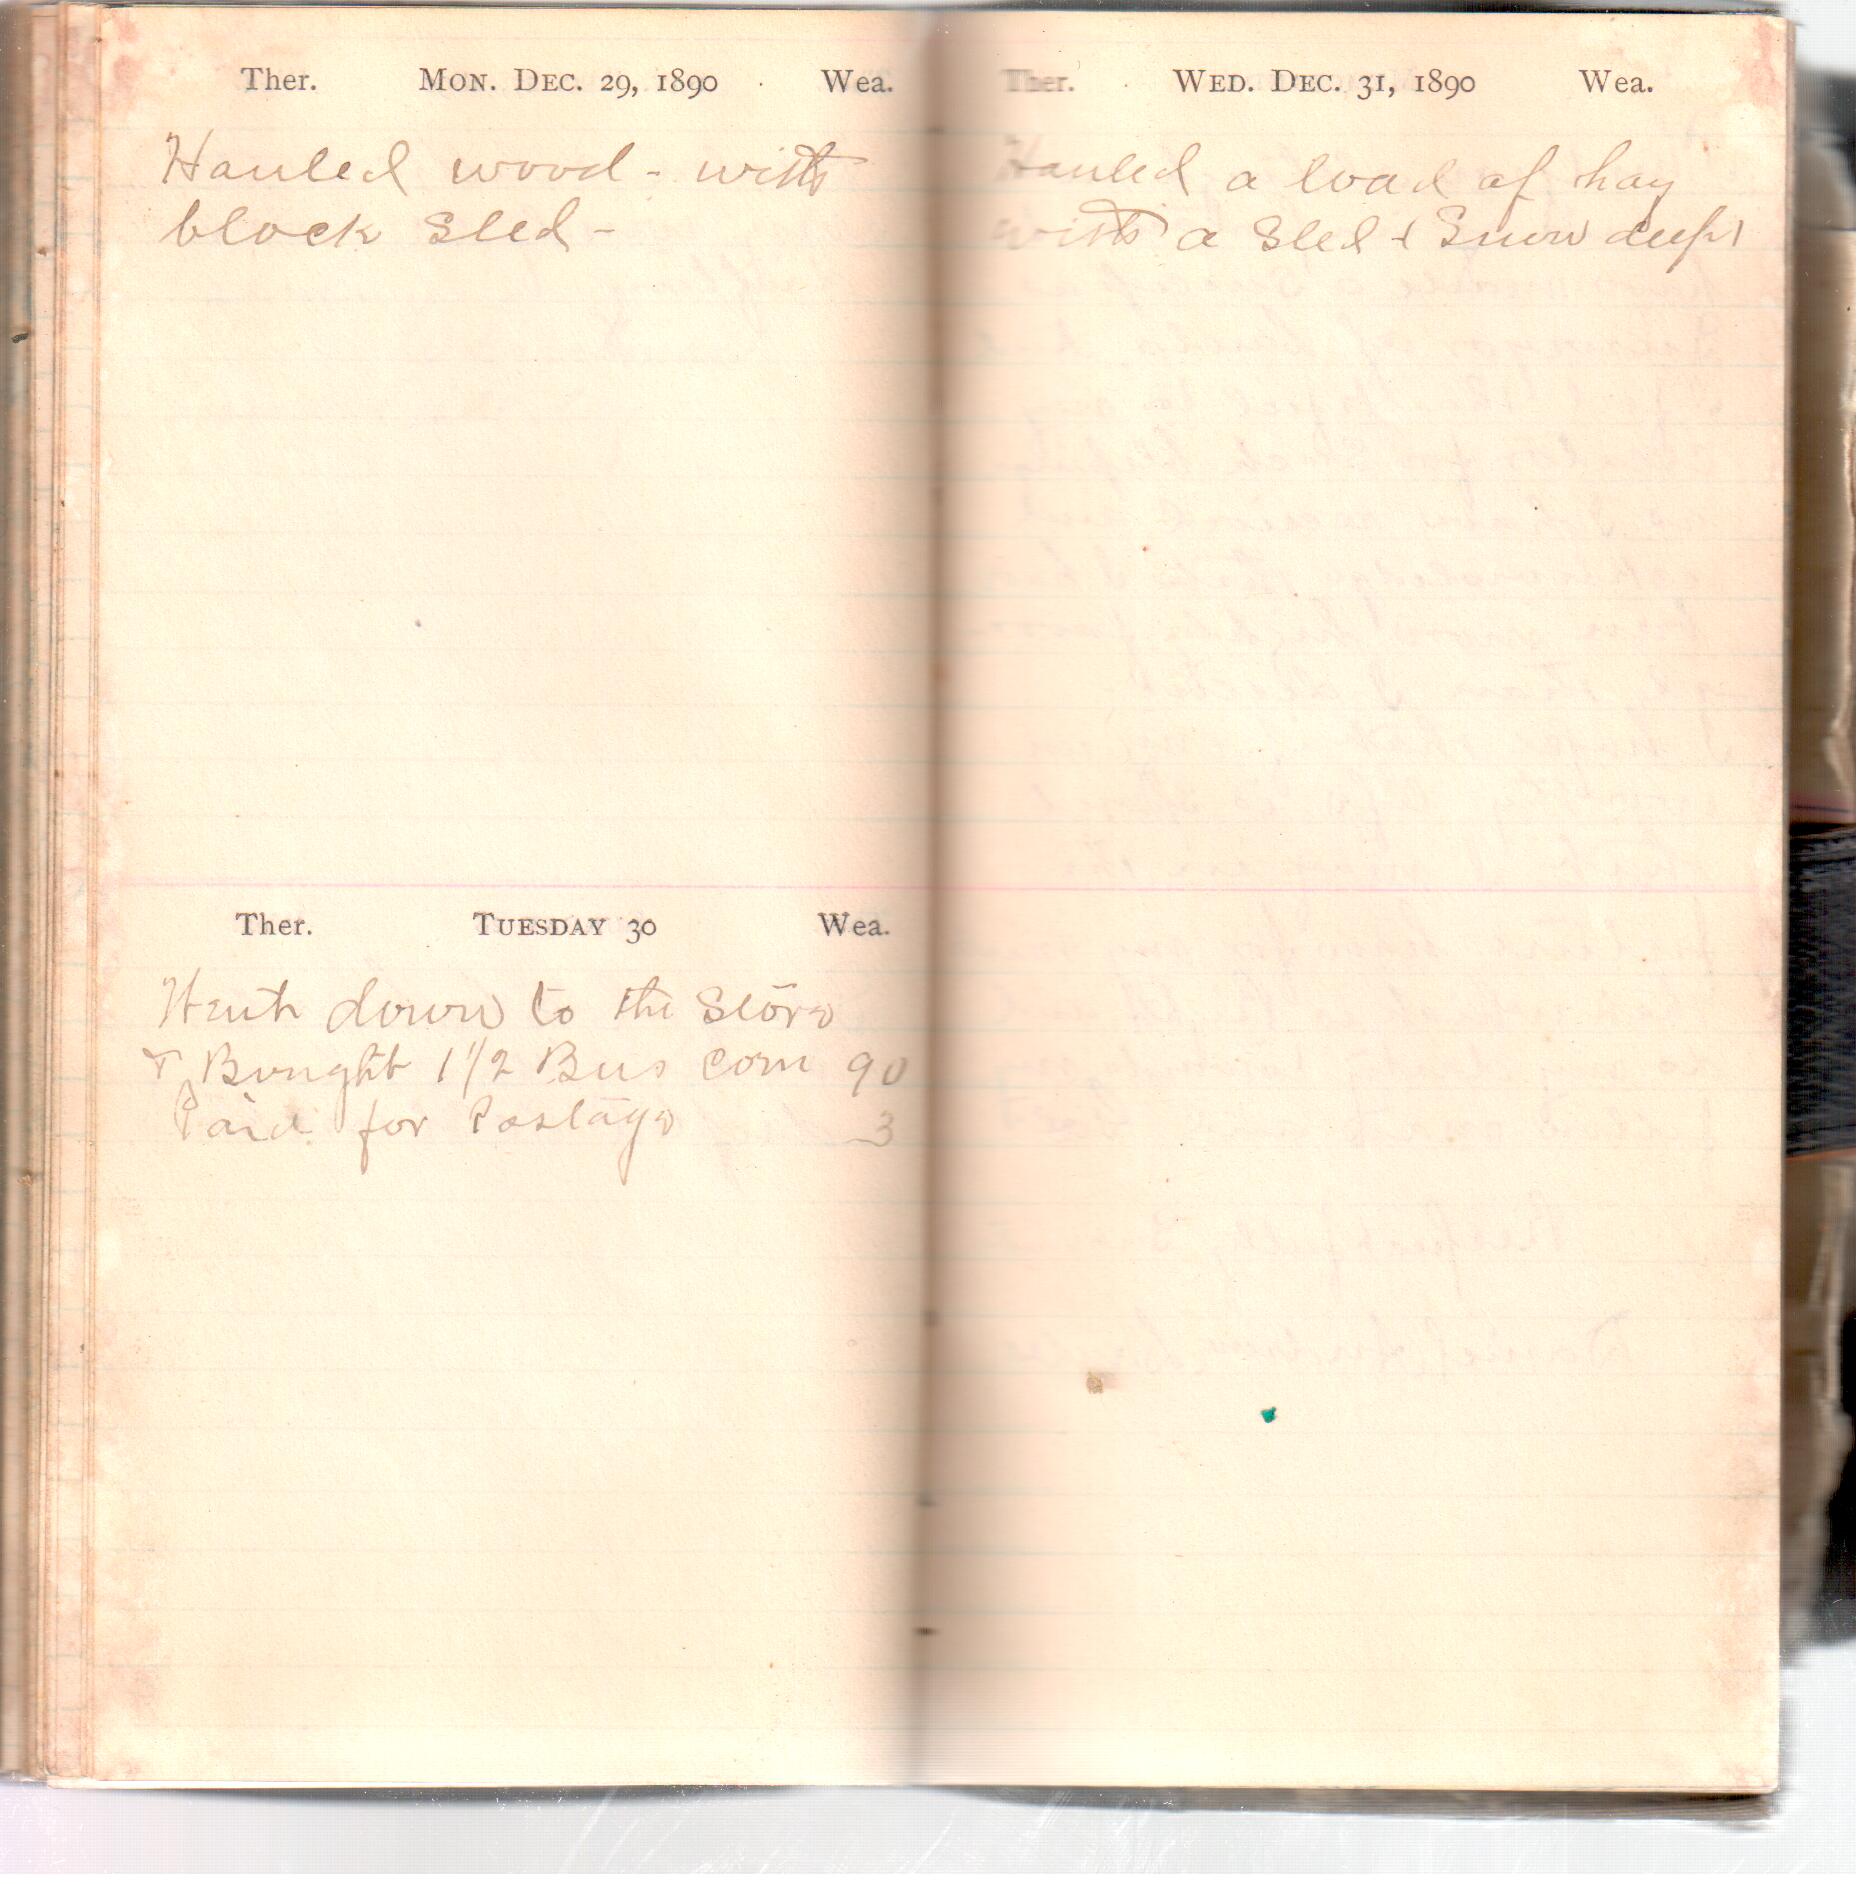 Ther. Mon. Dec. 29, 1890 Wea.
Hauled wood - with
block sled -
Ther. Tuesday 30 Wea.
Went down to the Store
& Bought 1 1/2 Bus corn 90
Paid for Postage 3
Ther. Wed. Dec. 31, 1890 Wea.
Hauled a load of hay
with a sled - (Snow deep)